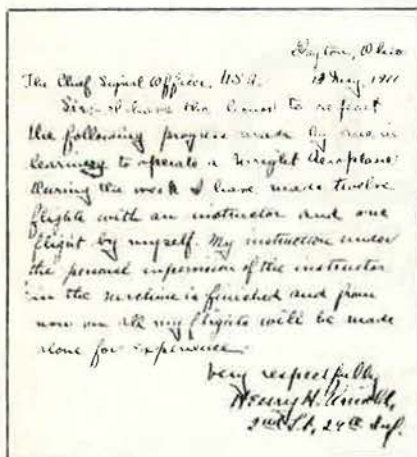 Dayton, Ohio
The Chief Signal Officer, U.S.A. 13 May, 1911
Sir:- I have the honor to report
the following progress made by me in
learning to operate a Wright Aeroplane:
During the week I have made twelve
flights with an instructor and one
flight by myself. My instruction under
the personal supervision of the instructor
in the machine is finished and from
now on all my flights will be made
alone for experience.
Very respectfully
Henry H. Arnold,
2nd Lt, 29th Inf.